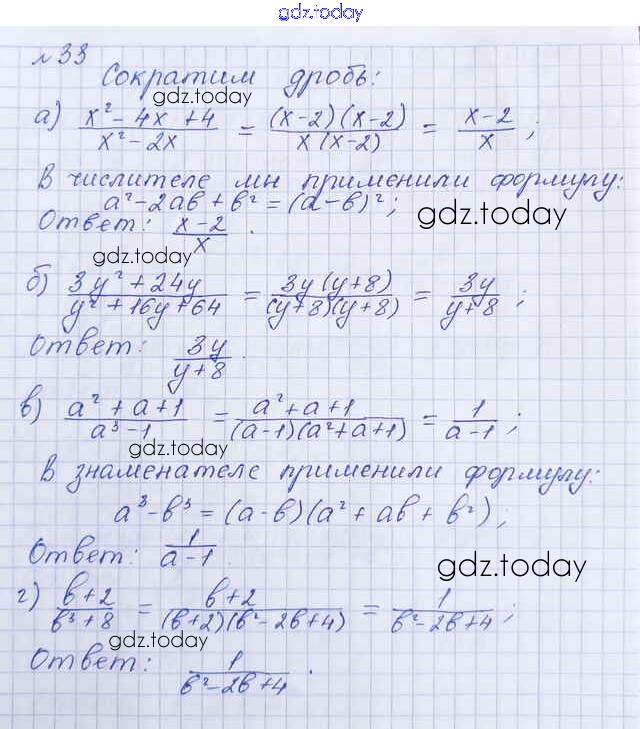 gdz.today
№ 33
Сократим дробь:
gdz.today
а) (x² - 4x + 4)/(x² - 2x) = ((x-2)(x-2))/(x(x-2)) = (x-2)/x ;
В числителе мы применили формулу:
a² - 2ab + b² = (a-b)²;
gdz.today
Ответ: (x-2)/x .
gdz.today
б) (3y² + 24y)/(y² + 16y + 64) = (3y(y+8))/((y+8)(y+8)) = 3y/(y+8) ;
Ответ: 3y/(y+8) .
в) (a² + a + 1)/(a³ - 1) = (a² + a + 1)/((a-1)(a² + a + 1)) = 1/(a-1) ;
gdz.today
В знаменателе применили формулу:
a³ - b³ = (a-b)(a² + ab + b²);
Ответ: 1/(a-1)
gdz.today
г) (b+2)/(b³ + 8) = (b+2)/((b+2)(b² - 2b + 4)) = 1/(b² - 2b + 4) ;
gdz.today
Ответ: 1/(b² - 2b + 4) .